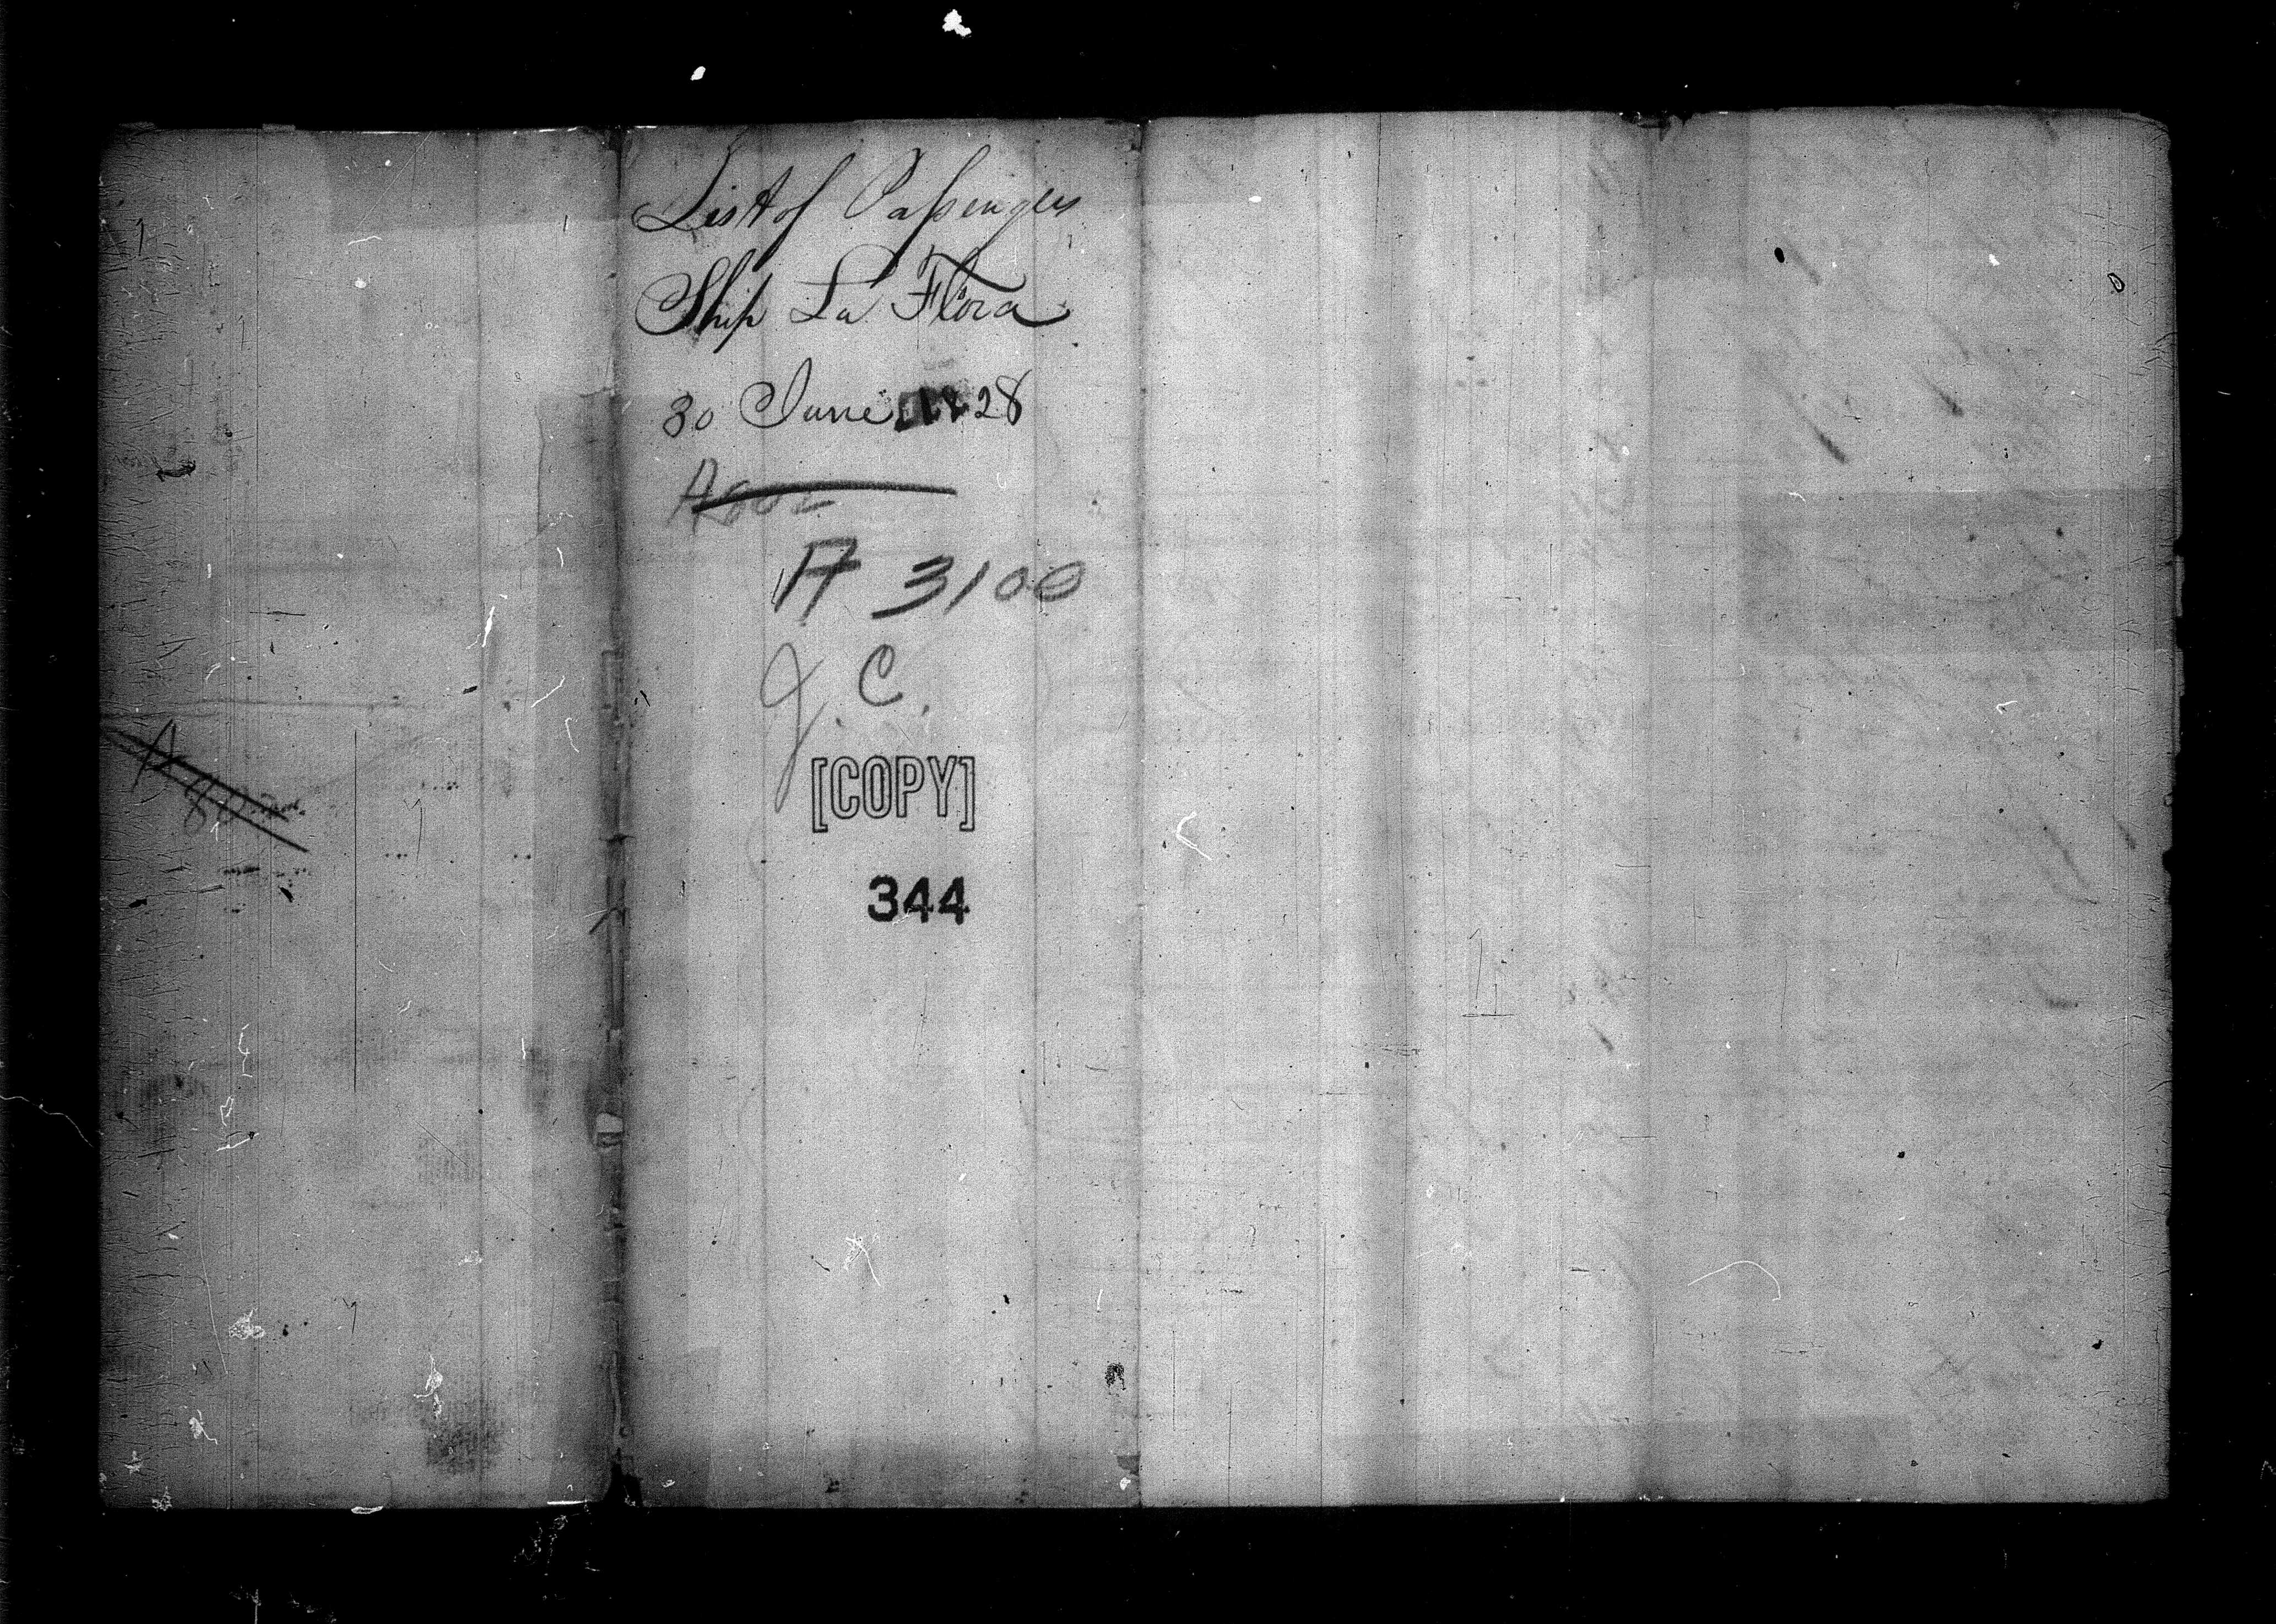 List of Passengers
Ship La Flora
30 June 1828
A 3100
J. C.
[COPY]
344
A